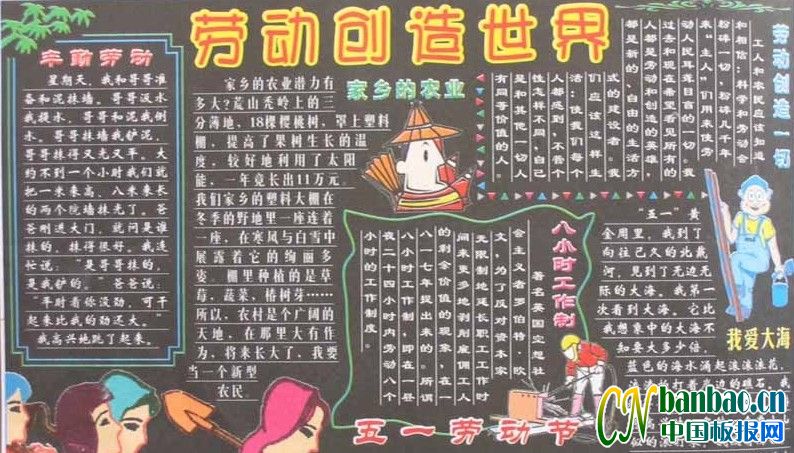 劳动创造世界
辛勤劳动
星期天，我和哥哥准
备和泥抹墙。哥哥汲水
我提水，哥哥和泥我倒
水。哥哥抹墙我铲泥，
哥哥抹得又光又平。大
约不到一个小时我们就
把一米来高 八米来长
的两个院墙抹光了。爸
爸刚进大门，就问是谁
抹的，抹得很好。我连
忙说：“是哥哥抹的，
是我铲的。”爸爸说：
“平时看你没劲，可干
起来比我的劲还大。”
我高兴地跳了起来。
家乡的农业
家乡的农业潜力有
多大？荒山秃岭上的三
分薄地，18棵樱桃树，罩上塑料
棚，提高了果树生长的温
度，较好地利用了太阳
能，一年竟长出11万元。
我们家乡的塑料大棚在
冬季的野地里一座连着
一座，在寒风与白雪中
展露着它的绚丽多
姿。棚里种植的是草
莓，蔬菜，椿树芽……
所以，农村是个广阔的
天地，在那里大有作
为，将来长大了，我要
当一个新型
农民。
劳动创造一切
工人和农民应该知道
和相信：科学和劳动会
粉碎一切，粉碎几千年
来“主人”们用来使劳
动人民耳聋目盲的一切。我
过去和现在希望看见所有的
人都是劳动和创造的英雄，
都是新的、自由的生活方
式的建设者。我
们应该这样生
活：使我们每个
人都感到，不管个
性怎样不同，自己
是和其他一切人
有同等价值的人。
八小时工作制
著名英国空想社
会主义者罗伯特·欧
文，为了反对资本家
无限制地延长职工工作时
间来更多地剥削雇佣工人
的剩余价值的现象，在一
八一七年提出来的。所谓
八小时工作制，即在一昼
夜二十四小时内劳动八个
小时的工作制度。
我爱大海
“五一”黄
金周里，我到了
向往已久的北戴
河，见到了无边无
际的大海。我第一
次看到大海。它比
我想象中的大海不
知要大多少倍。
蓝色的海水涌起滚滚浪花，
五一劳动节
CN banbao.cn
中国板报网